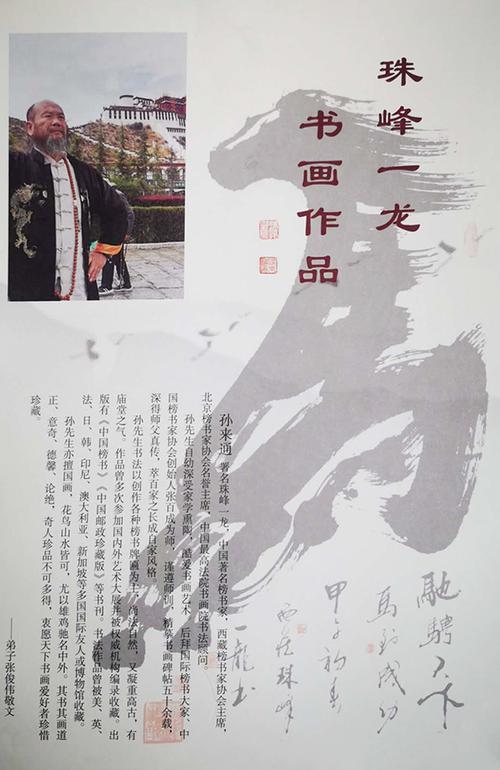 珠峰一龙
书画作品
馳騁天下
马到成功
甲午初春
西藏珠峰
一龍书
孙来通 著名珠峰一龙,中国著名榜书家,西藏榜书家协会主席,
北京榜书家协会名誉主席,中国最高法院书画院书法顾问。
孙先生自幼深受家学熏陶,酷爱书画艺术,后拜国际榜书大家、中
国榜书家协会创始人张百成为师,谨遵师训,精摹书画碑帖五十余载,
深得师父真传,萃百家之长成自家风格。
孙先生书法以创作各种榜书牌匾为主,尚法自然,又凝重高古,有
庙堂之气。作品曾多次参加国内外艺术大展并被权威机构编录收藏。出
版有《中国榜书》《中国邮政珍藏版》等书刊。书法作品曾被美、英、
法、日、韩、印尼、澳大利亚、新加坡等多国国际友人或博物馆收藏。
孙先生亦擅国画,花鸟山水皆可,尤以雄鸡驰名中外。其书其画道
正、意奇、德馨、论绝,奇人珍品不可多得,衷愿天下书画爱好者珍惜
珍藏。
——弟子张俊伟敬文